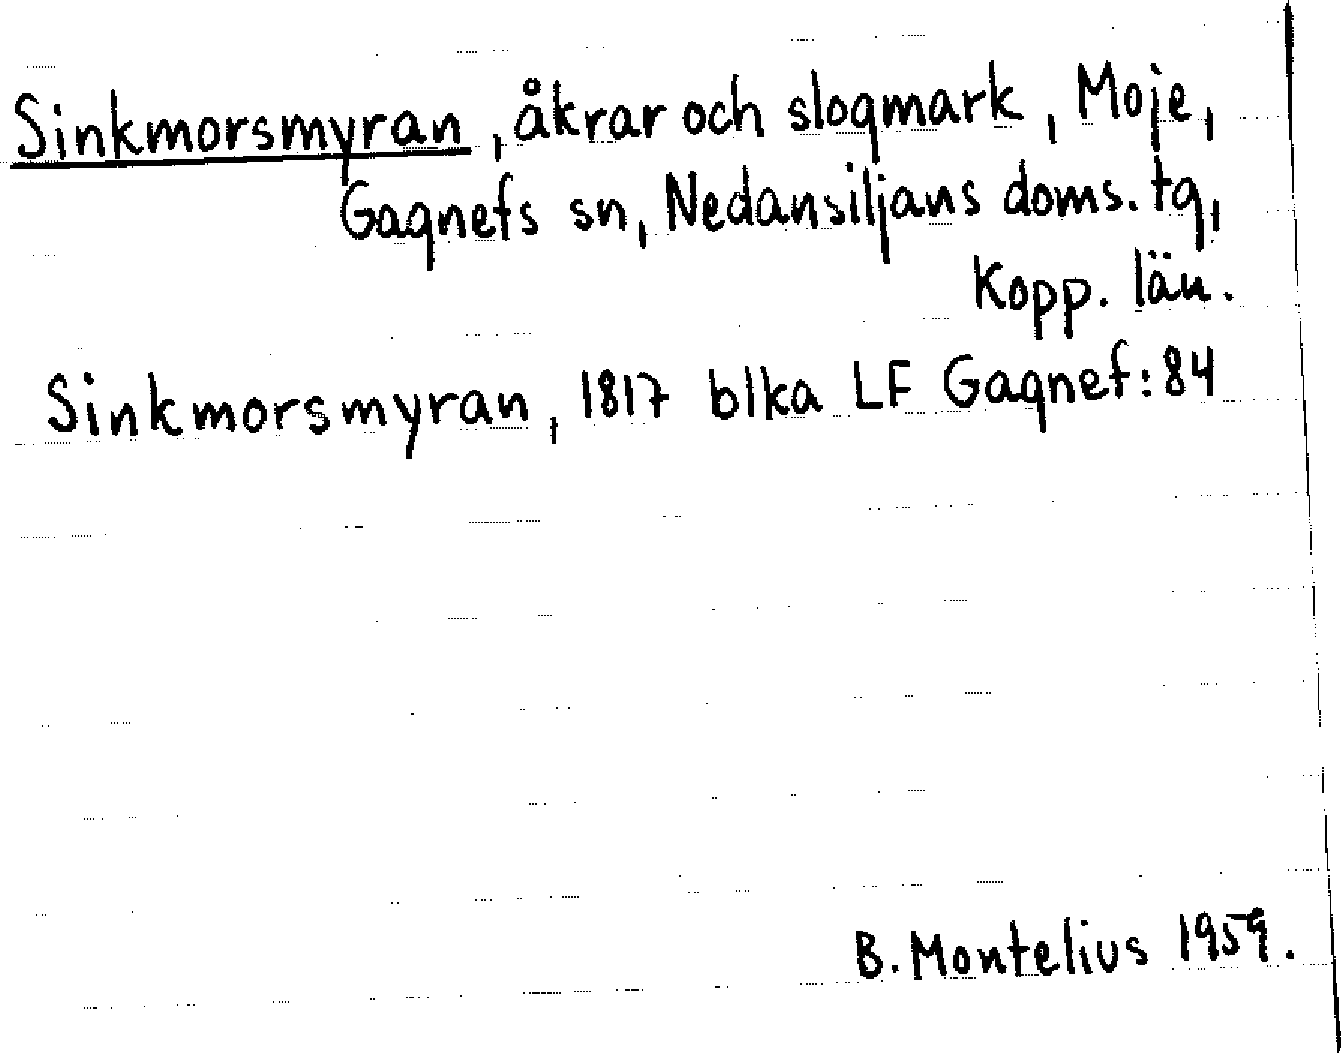 Sinkmorsmyran, åkrar och slogmark, Moje,
Gagnefs sn, Nedansiljans doms. tg,
Kopp. län.
Sinkmorsmyran, 1817 blka LF Gagnef:84
B. Montelius 1959.